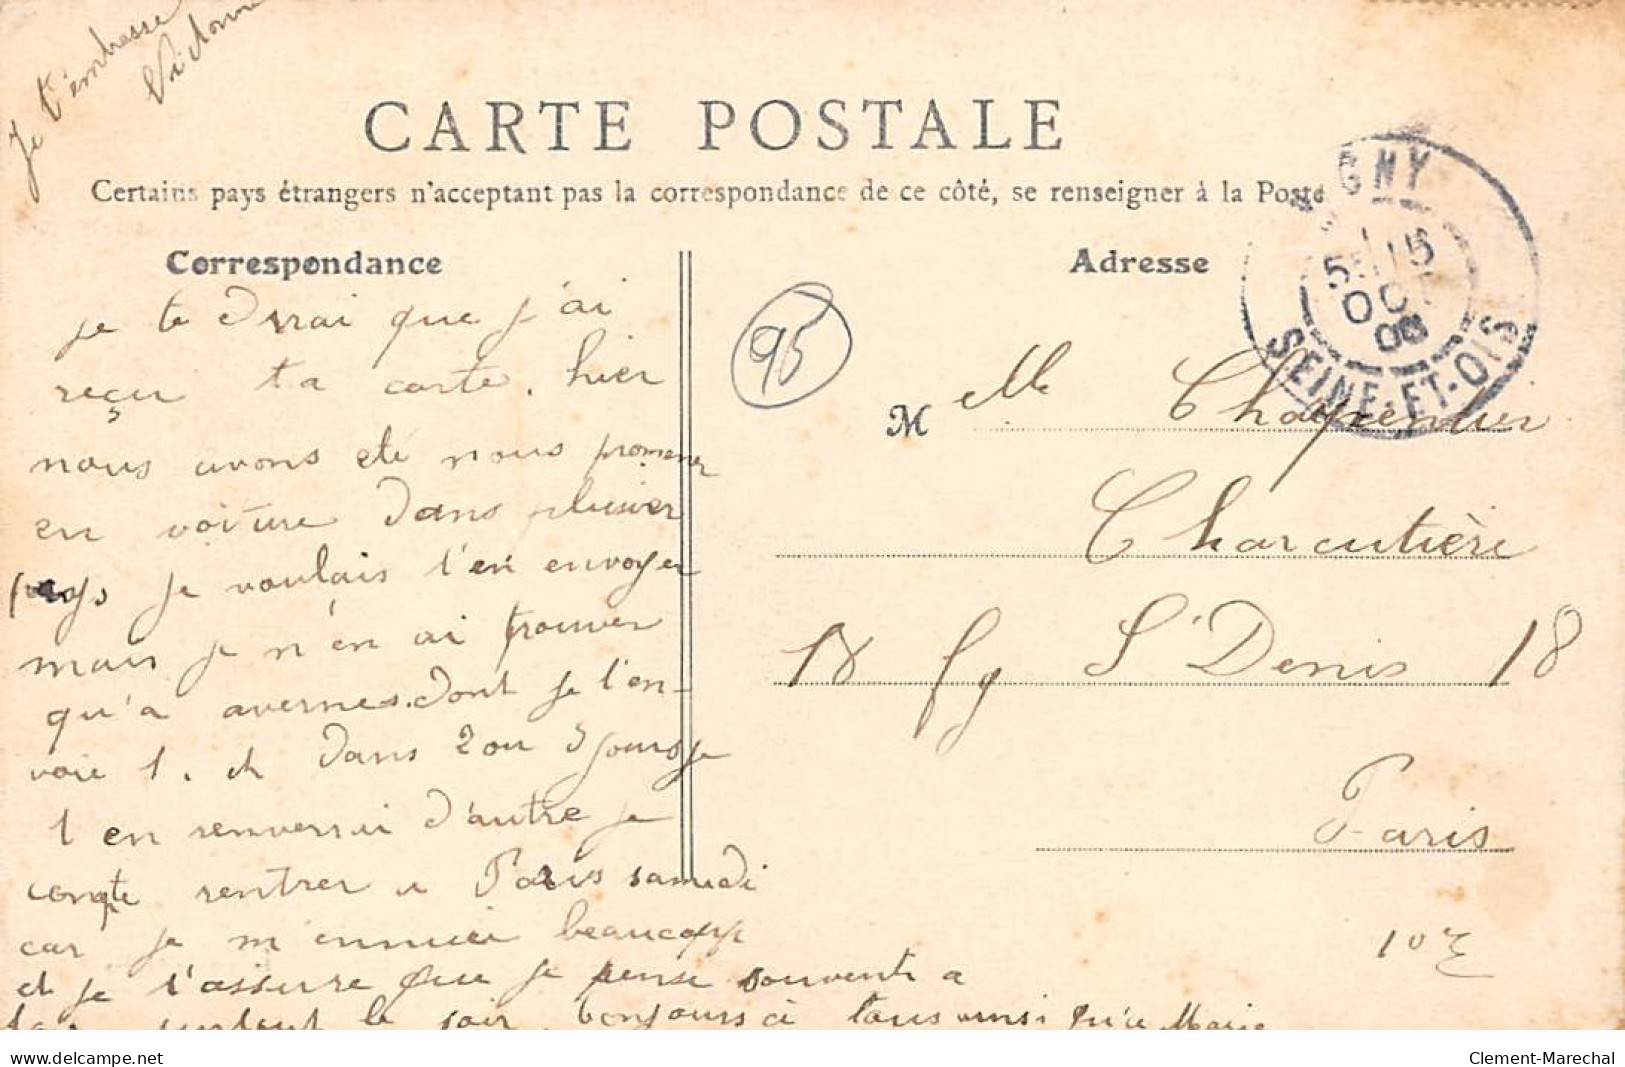 Je t'embrasse
CARTE POSTALE
Certains pays étrangers n'acceptant pas la correspondance de ce côté, se renseigner à la Poste
GNY
OCT
SEINE-ET-OISE
Correspondance
je te dirai que j'ai
reçu ta carte. hier
nous avons eté nous promener
en voiture dans plusier
pays je voulais t'en envoyer
mais je n'en ai trouver
qu'a avernes. dont je t'en-
voie 1. et dans 2 ou 3 jours je
t en renverrai d'autre je
compte rentrer a Paris samedi
car je m'ennuie beaucoup
et je t'assure que je pense souvent a
toi surtout le soir. bonjours à tous ainsi qu'a Marie
95
Adresse
Melle Charpentier
Charcutière
18 fg St Denis 18
Paris
www.delcampe.net
Clement-Marechal